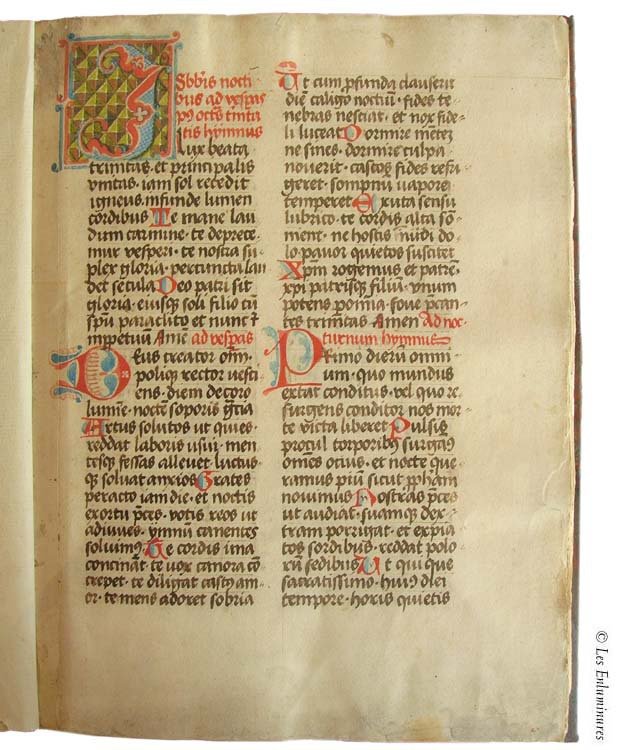 Sbb̄is nocti
bus ad vespas
p9 octā tinita
tis hymnus
O lux beata
trinitas · et principalis
vnitas · iam sol recedit
igneus · infunde lumen
cordibus Te mane lau
dum carmine · te deprece
mur vesperi · te nostra su
plex gloria · per cuncta lau
det secula Deo patri sit
gloria · eiusq̄ soli filio cū
spū paraclito et nunc ⁊
īmpetuū Amē ad vespas
Deus creator om̄i
poliq̄ rector vesti
ens · diem decoro
lumīe · noctē soporis gr̄cia
Artus solutos ut quies ·
reddat laboris usui · men
tesq̄ fessas allevet · luctus
q̄ soluat anxios Grates
peracto iam die · et noctis
exortu p̄ces · votis reos ut
adiuves · ymnū canentes
soluim9 Te cordis ima
concināt · te vox canora cō
crepet · te diligat cast9 am
or · te mens adoret sobria
Ut cum p̄funda clauserit
diē caligo noctiū · fides te
nebras nesciat · et nox fide
li luceat Dormire mētē
ne sines · dormire culpa
noverit · castos fides refri
geret · sompnii vapore
temperet Exuta sensu
lubrico · te cordis alta sō
ment · ne hostis īuidi do
lo pavor quietos suscitet
Xpm̄ rogemus et patrē ·
xpi patrisq̄ filiū · vnum
potens p om̄ia · fove p̄can
tes trinitas Amen Ad noc
turnum hymnus
Primo dierū omni
um · quo mundus
extat conditus · vel quo re
surgens conditor nos mor
te victa liberet Pulsis
procul torporib9 surgam9
om̄es ocius · et nocte que
ramus piū sicut pp̄ham
novimus Nostras p̄ces
ut audiat · suamq̄ dex
tram porrigat · et expia
tos sordibus · reddat polo
rū sedibus Ut qui que
sacratissimo · hui9 diei
tempore · horis quietis
© Les Enluminures